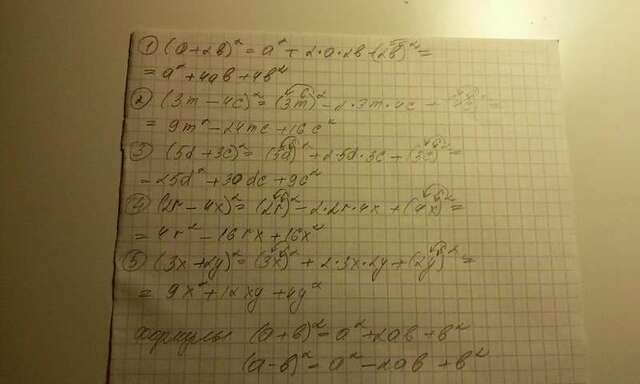 ① (a+2b)² = a² + 2·a·2b + (2b)² =
= a² + 4ab + 4b²
② (3m − 4c)² = (3m)² − 2·3m·4c +
= 9m² − 24mc + 16c²
③ (5d + 3c)² = (5d)² + 2·5d·3c + (3c)² =
= 25d² + 30dc + 9c²
④ (2r − 4x)² = (2r)² − 2·2r·4x + (4x)² =
= 4r² − 16rx + 16x²
⑤ (3x + 2y)² = (3x)² + 2·3x·2y + (2y)² =
= 9x² + 12xy + 4y²
формулы (a+b)² = a² + 2ab + b²
(a−b)² = a² − 2ab + b²